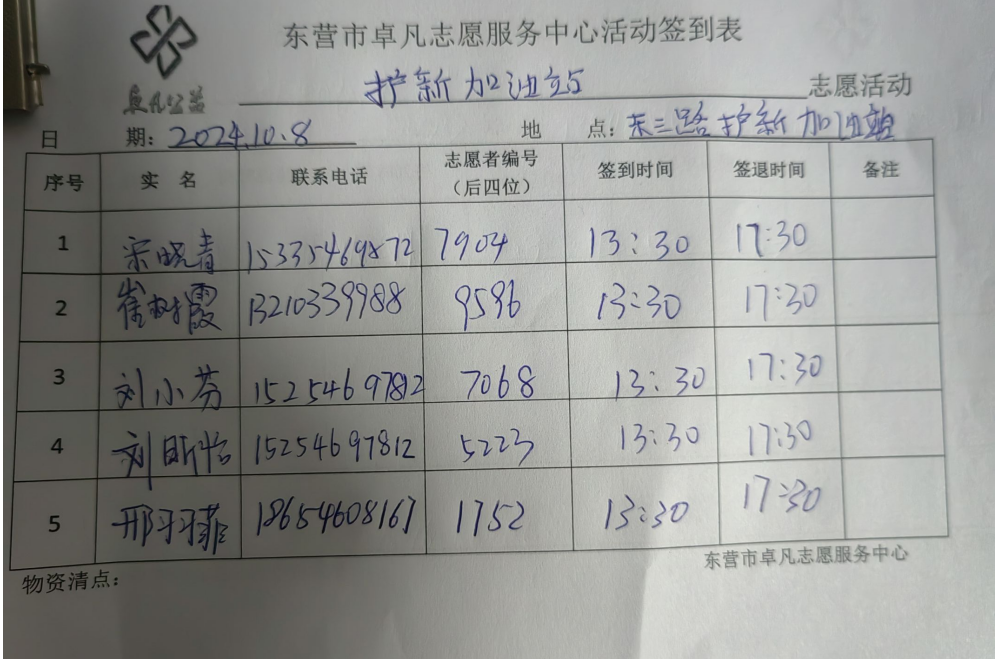 东营市卓凡志愿服务中心活动签到表
护新加油站 志愿活动
卓凡公益
日 期: 2024.10.8 地 点: 东三路护新加油站
序号 实 名 联系电话 志愿者编号(后四位) 签到时间 签退时间 备注
1 宋晓青 15335469872 7904 13:30 17:30
2 崔树霞 13210339988 9596 13:30 17:30
3 刘小芬 15254697812 7068 13:30 17:30
4 刘昕怡 15254697812 5223 13:30 17:30
5 邢羽菲 18654608167 1752 13:30 17:30
东营市卓凡志愿服务中心
物资清点: